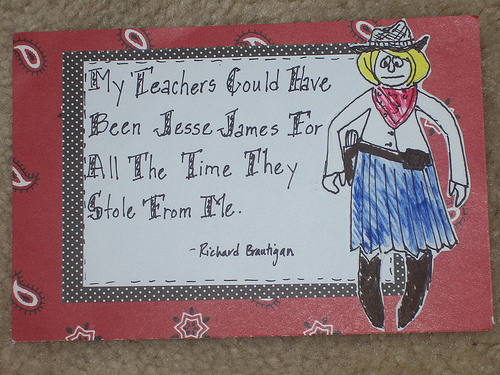 My Teachers Could Have
Been Jesse James For
All The Time They
Stole From Me.
- Richard Brautigan